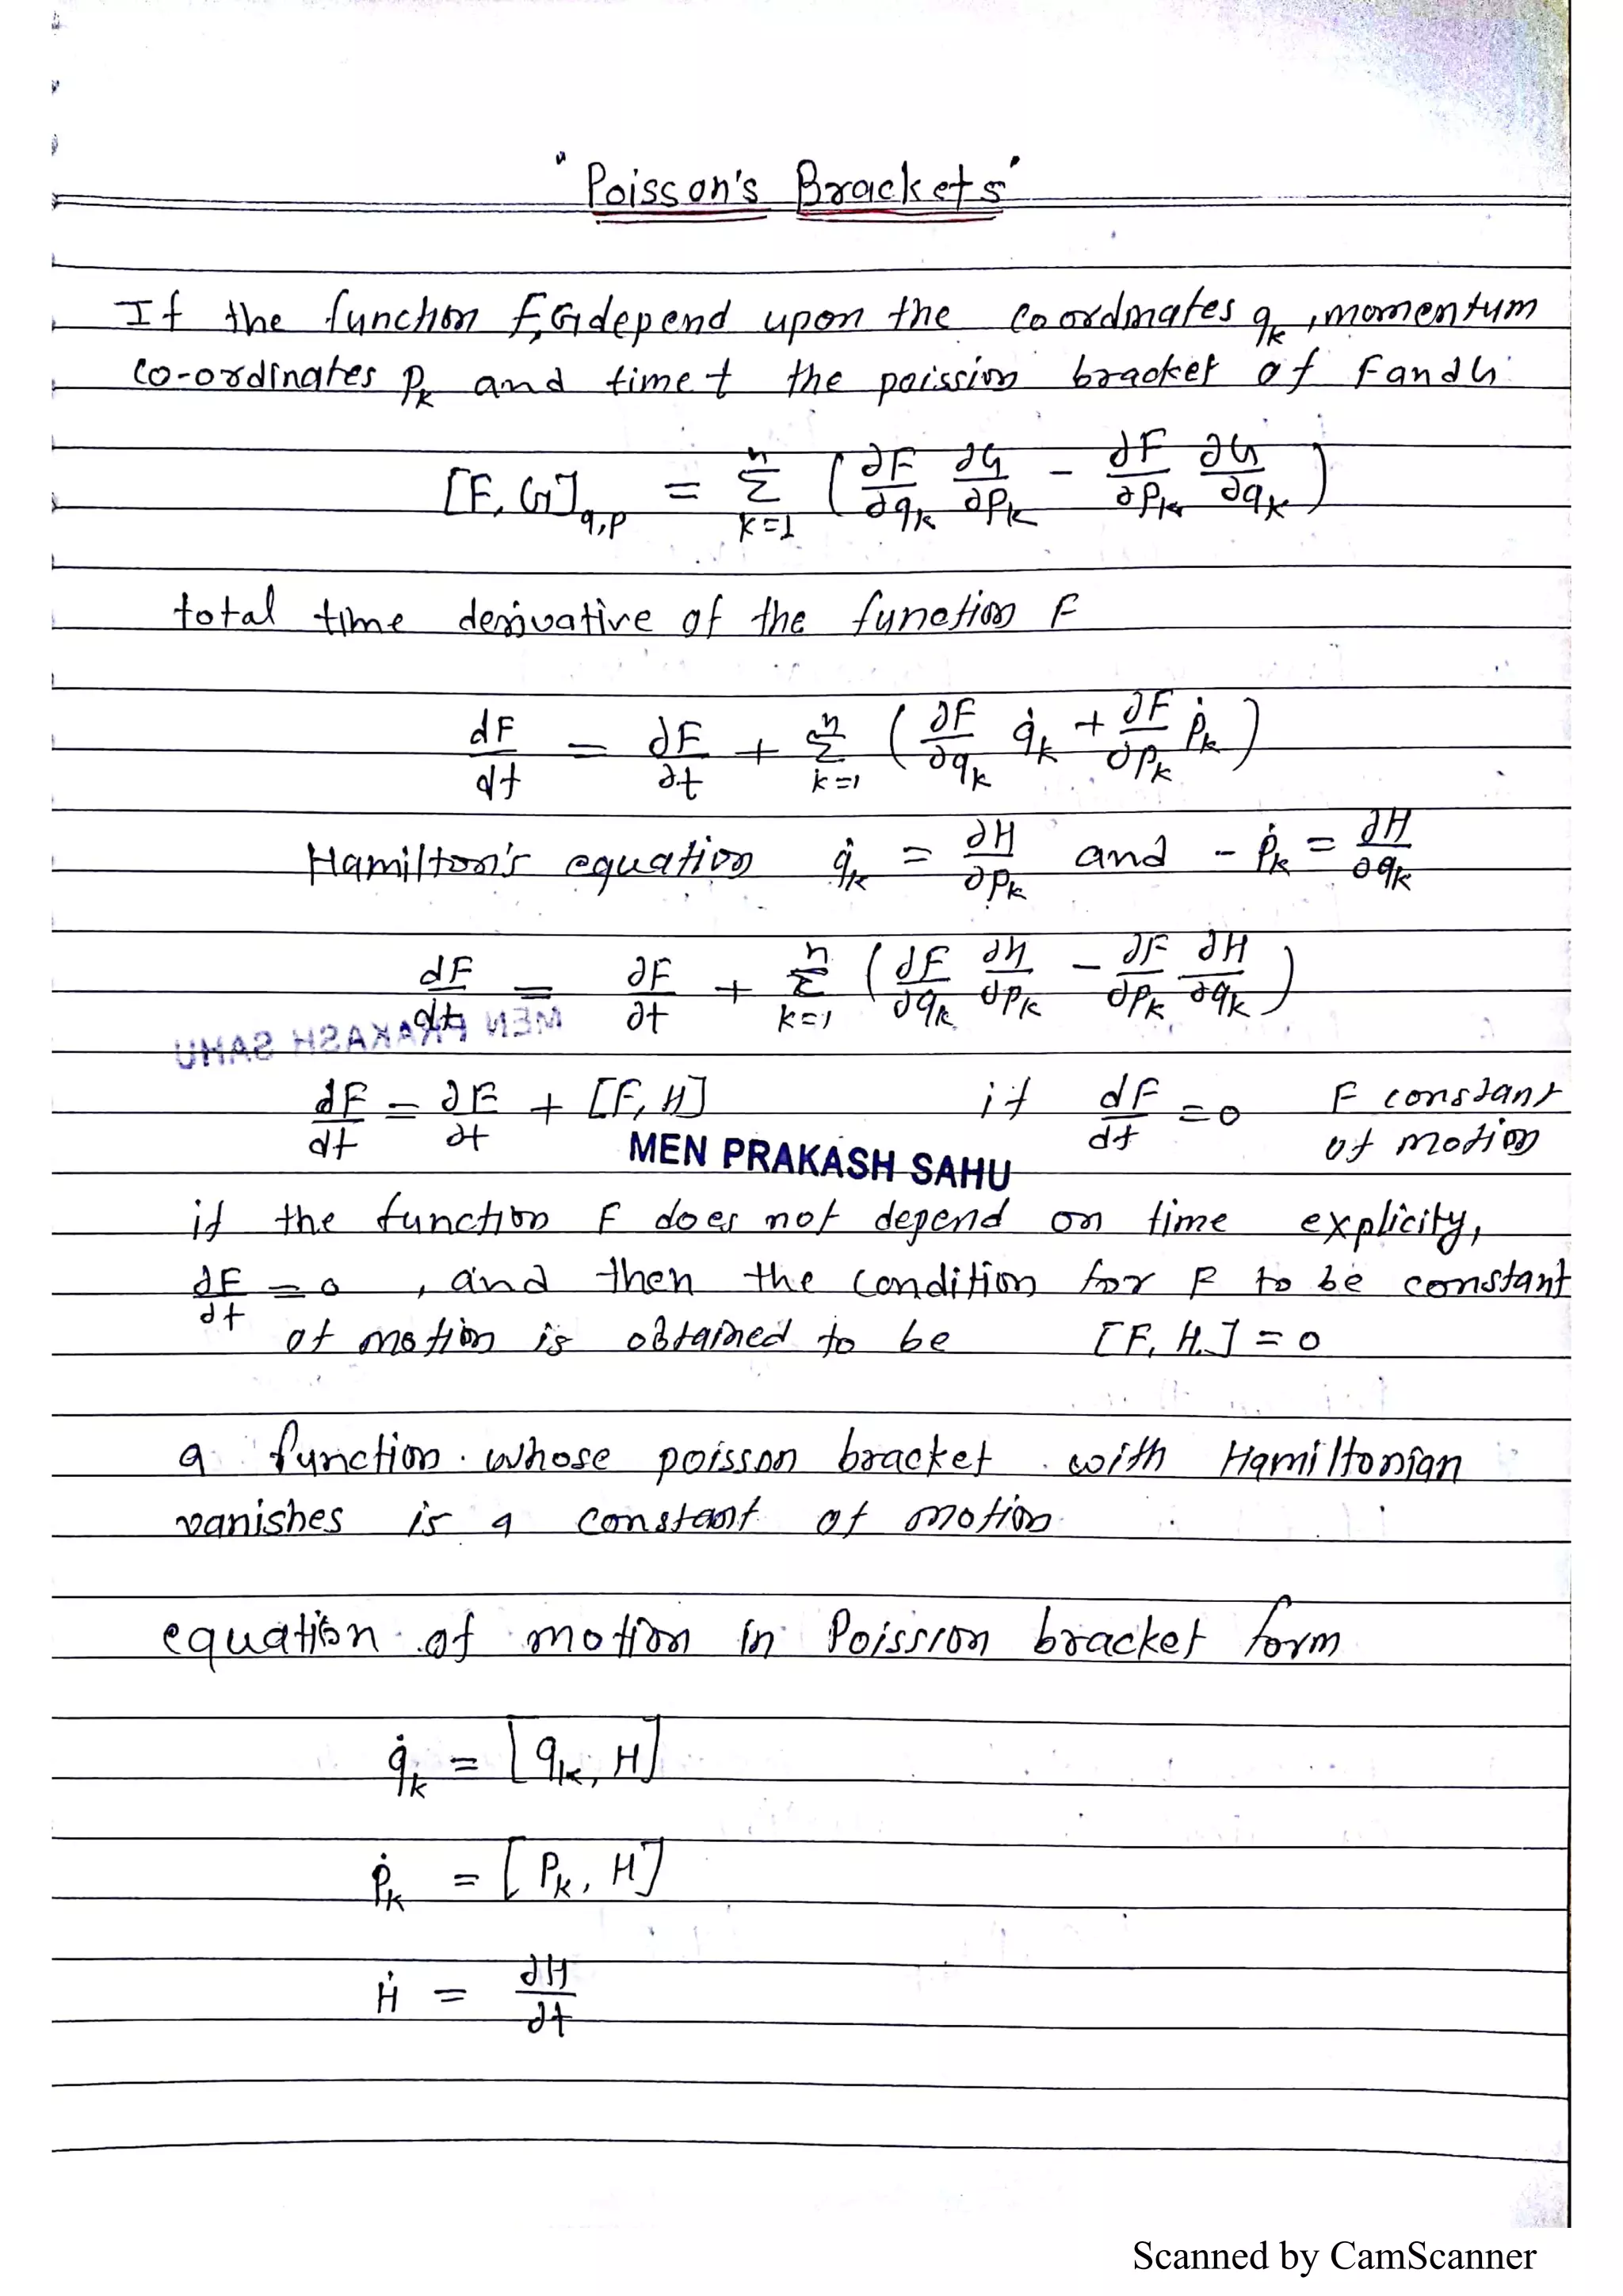 "Poisson's Brackets"
If the function F,G depend upon the coordinates qk, momentum
co-ordinates Pk and time t the poission bracket of F and G
[F, G]q,p = Σ(k=1 to n) (∂F/∂qk ∂G/∂Pk - ∂F/∂Pk ∂G/∂qk)
total time derivative of the function F
dF/dt = ∂F/∂t + Σ(k=1 to n) (∂F/∂qk q̇k + ∂F/∂Pk Ṗk)
Hamilton's equation q̇k = ∂H/∂Pk and - Ṗk = ∂H/∂qk
dF/dt = ∂F/∂t + Σ(k=1 to n) (∂F/∂qk ∂H/∂Pk - ∂F/∂Pk ∂H/∂qk)
MEN PRAKASH SAHU
dF/dt = ∂F/∂t + [F, H] if dF/dt = 0 F constant
of motion
MEN PRAKASH SAHU
if the function F does not depend on time explicity,
∂F/∂t = 0, and then the condition for F to be constant
of motion is obtained to be [F, H] = 0
a function whose poisson bracket with Hamiltonian
vanishes is a constant of motion
equation of motion in Poission bracket form
q̇k = [qk, H]
Ṗk = [Pk, H]
Ḣ = ∂H/∂t
Scanned by CamScanner